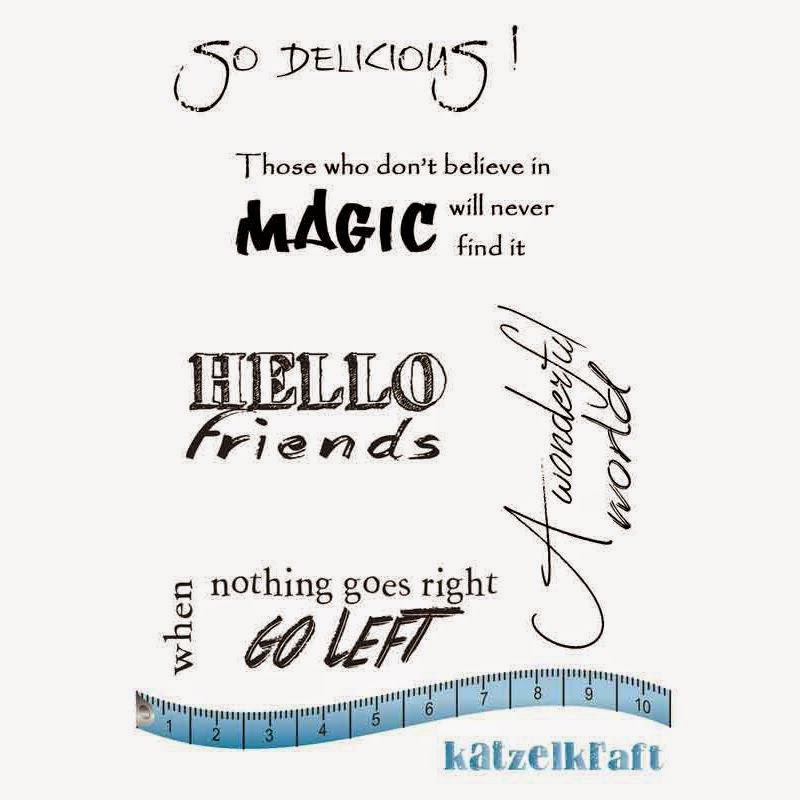 So DELICIOUS !
Those who don't believe in
MAGIC will never
find it
HELLO
friends
A wonderful
world
when nothing goes right
GO LEFT
1 2 3 4 5 6 7 8 9 10
katzelkraft